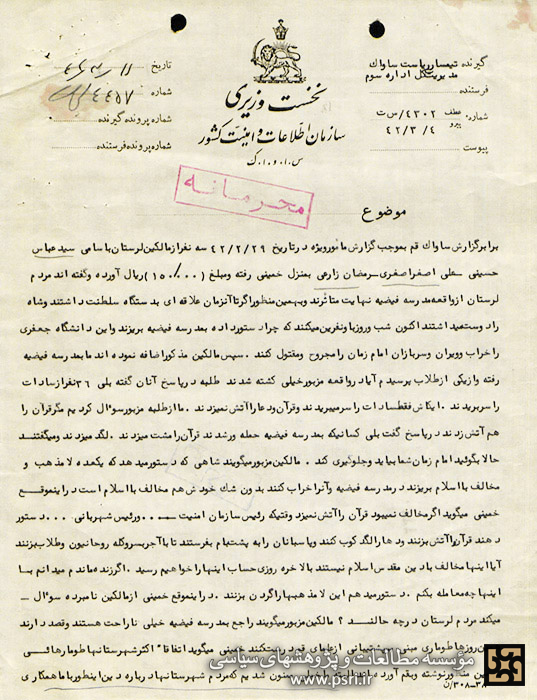 گیرنده تیمسار ریاست ساواک
مدیریت کل اداره سوم
فرستنده
شماره عطف پیرو ۴۳۰۲/س ت
۴۲/۳/۴
پیوست
نخست وزیری
سازمان اطلاعات و امنیت کشور
س.ا.و.ا.ک
تاریخ
شماره ۴۴۵۷
شماره پرونده گیرنده
شماره پرونده فرستنده
محرمانه
موضوع
برابر گزارش ساواک قم بموجب گزارش مأمور ویژه در تاریخ ۴۲/۲/۲۹ سه نفر از مالکین لرستان باسامی سید عباس
حسینی ـ علی اصغر اصغری ـ رمضان زارعی بمنزل خمینی رفته و مبلغ (۱۵۰/۰۰) ریال آورده و گفته اند مردم
لرستان از واقعه مدرسه فیضیه نهایت متأثرند و بهمین منظور اگر تا آنزمان علاقه ای بدستگاه سلطنت داشتند و شاه
را دوست میداشتند اکنون شب و روز باو نفرین میکنند که چرا دستور داده بمدرسه فیضیه بریزند و این دانشگاه جعفری
را خراب و ویران و سربازان امام زمان را مجروح و مقتول کنند . سپس مالکین مذکور اضافه نموده اند ما بمدرسه فیضیه
رفته و از یکی از طلاب پرسیدیم آیا در واقعه مزبور خیلی کشته شدند طلبه در پاسخ آنان گفته بلی ۳۶ نفر از سادات
را سر بریدند . ایکاش فقط سادات را سر میبریدند و قرآن و دعا را آتش نمیزدند . ما از طلبه مزبور سوال کردیم مگر قرآن را
هم آتش زدند در پاسخ گفت بلی کسانیکه بمدرسه فیضیه حمله ور شدند قرآن را مشت میزدند . لگد میزدند و میگفتند
حالا بگوئید امام زمان شما بیاید و جلوگیری کند . مالکین مزبور میگویند شاهی که دستور میدهد که یکعده لا مذهب و
مخالف با اسلام بریزند در مدرسه فیضیه و آنرا خراب کنند بدون شک خودش هم مخالف با اسلام است در اینموقع
خمینی میگوید اگر مخالف نمیبود قرآن را آتش نمیزد وقتیکه رئیس سازمان امنیت ــ . . و رئیس شهربانی . . . دستور
دهند قرآن را آتش بزنند و دعا را لگد کوب کنند و پاسبانان را به پشت بام بفرستند تا با آجر بسر و کله روحانیون و طلاب بزنند
آیا اینها مخالف با دین مقدس اسلام نیستند بالاخره روزی حساب اینها را خواهیم رسید . اگر زنده ماندم میدانم با
اینها چه معامله بکنم . دستور میدهم این لا مذهبها را گردن بزنند . در اینموقع خمینی از مالکین نامبرده سوال ــ
میکند مردم لرستان در چه حالند ؟ مالکین مزبور میگویند راجع بمدرسه فیضیه خیلی ناراحت هستند و قصد دارند
روزها طوماری مبنی بر پشتیبانی از علمای قم درست کنند خمینی میگوید اتفاقاً اکثر شهرستانها
نوشته و بقم آورده اند که مردم شهرستانها درباره دین اینطور با ما همکاری
مؤسسه مطالعات و پژوهشهای سیاسی
www.psri.ir